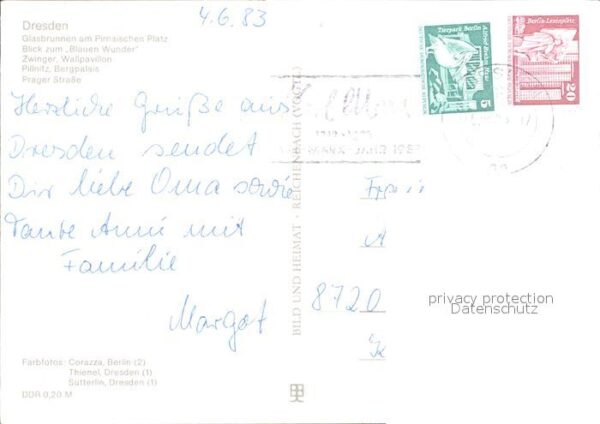 4.6.83
Dresden
Glasbrunnen am Pirnaischen Platz
Blick zum „Blauen Wunder“
Zwinger, Wallpavillon
Pillnitz, Bergpalais
Prager Straße
Herzliche Grüße aus
Dresden sendet
Dir liebe Oma sowie
Tante Anni mit
Familie
Margot
Farbfotos: Corazza, Berlin (2)
Thienel, Dresden (1)
Sütterlin, Dresden (1)
DDR 0,20 M
BILD UND HEIMAT · REICHENBACH (VOGTL)
Tierpark Berlin
5
Berlin-Leninplatz
20
8720
privacy protection
Datenschutz